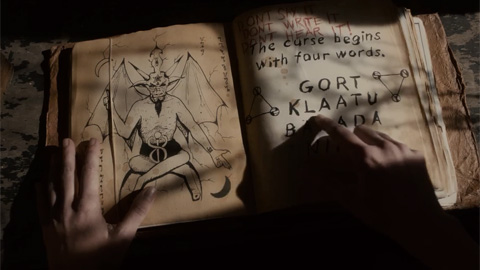 DONT WRITE IT
DONT HEAR IT!
The curse begins
with four words.
GORT
KLAATU